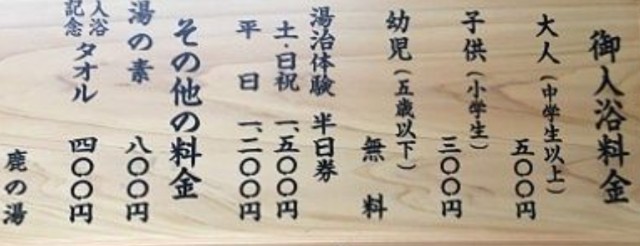 御入浴料金
大人(中学生以上) 五〇〇円
子供(小学生) 三〇〇円
幼児(五歳以下) 無料
湯治体験 半日券
土・日祝 一、五〇〇円
平日 一、二〇〇円
その他の料金
湯の素 八〇〇円
入浴記念タオル 四〇〇円
鹿の湯